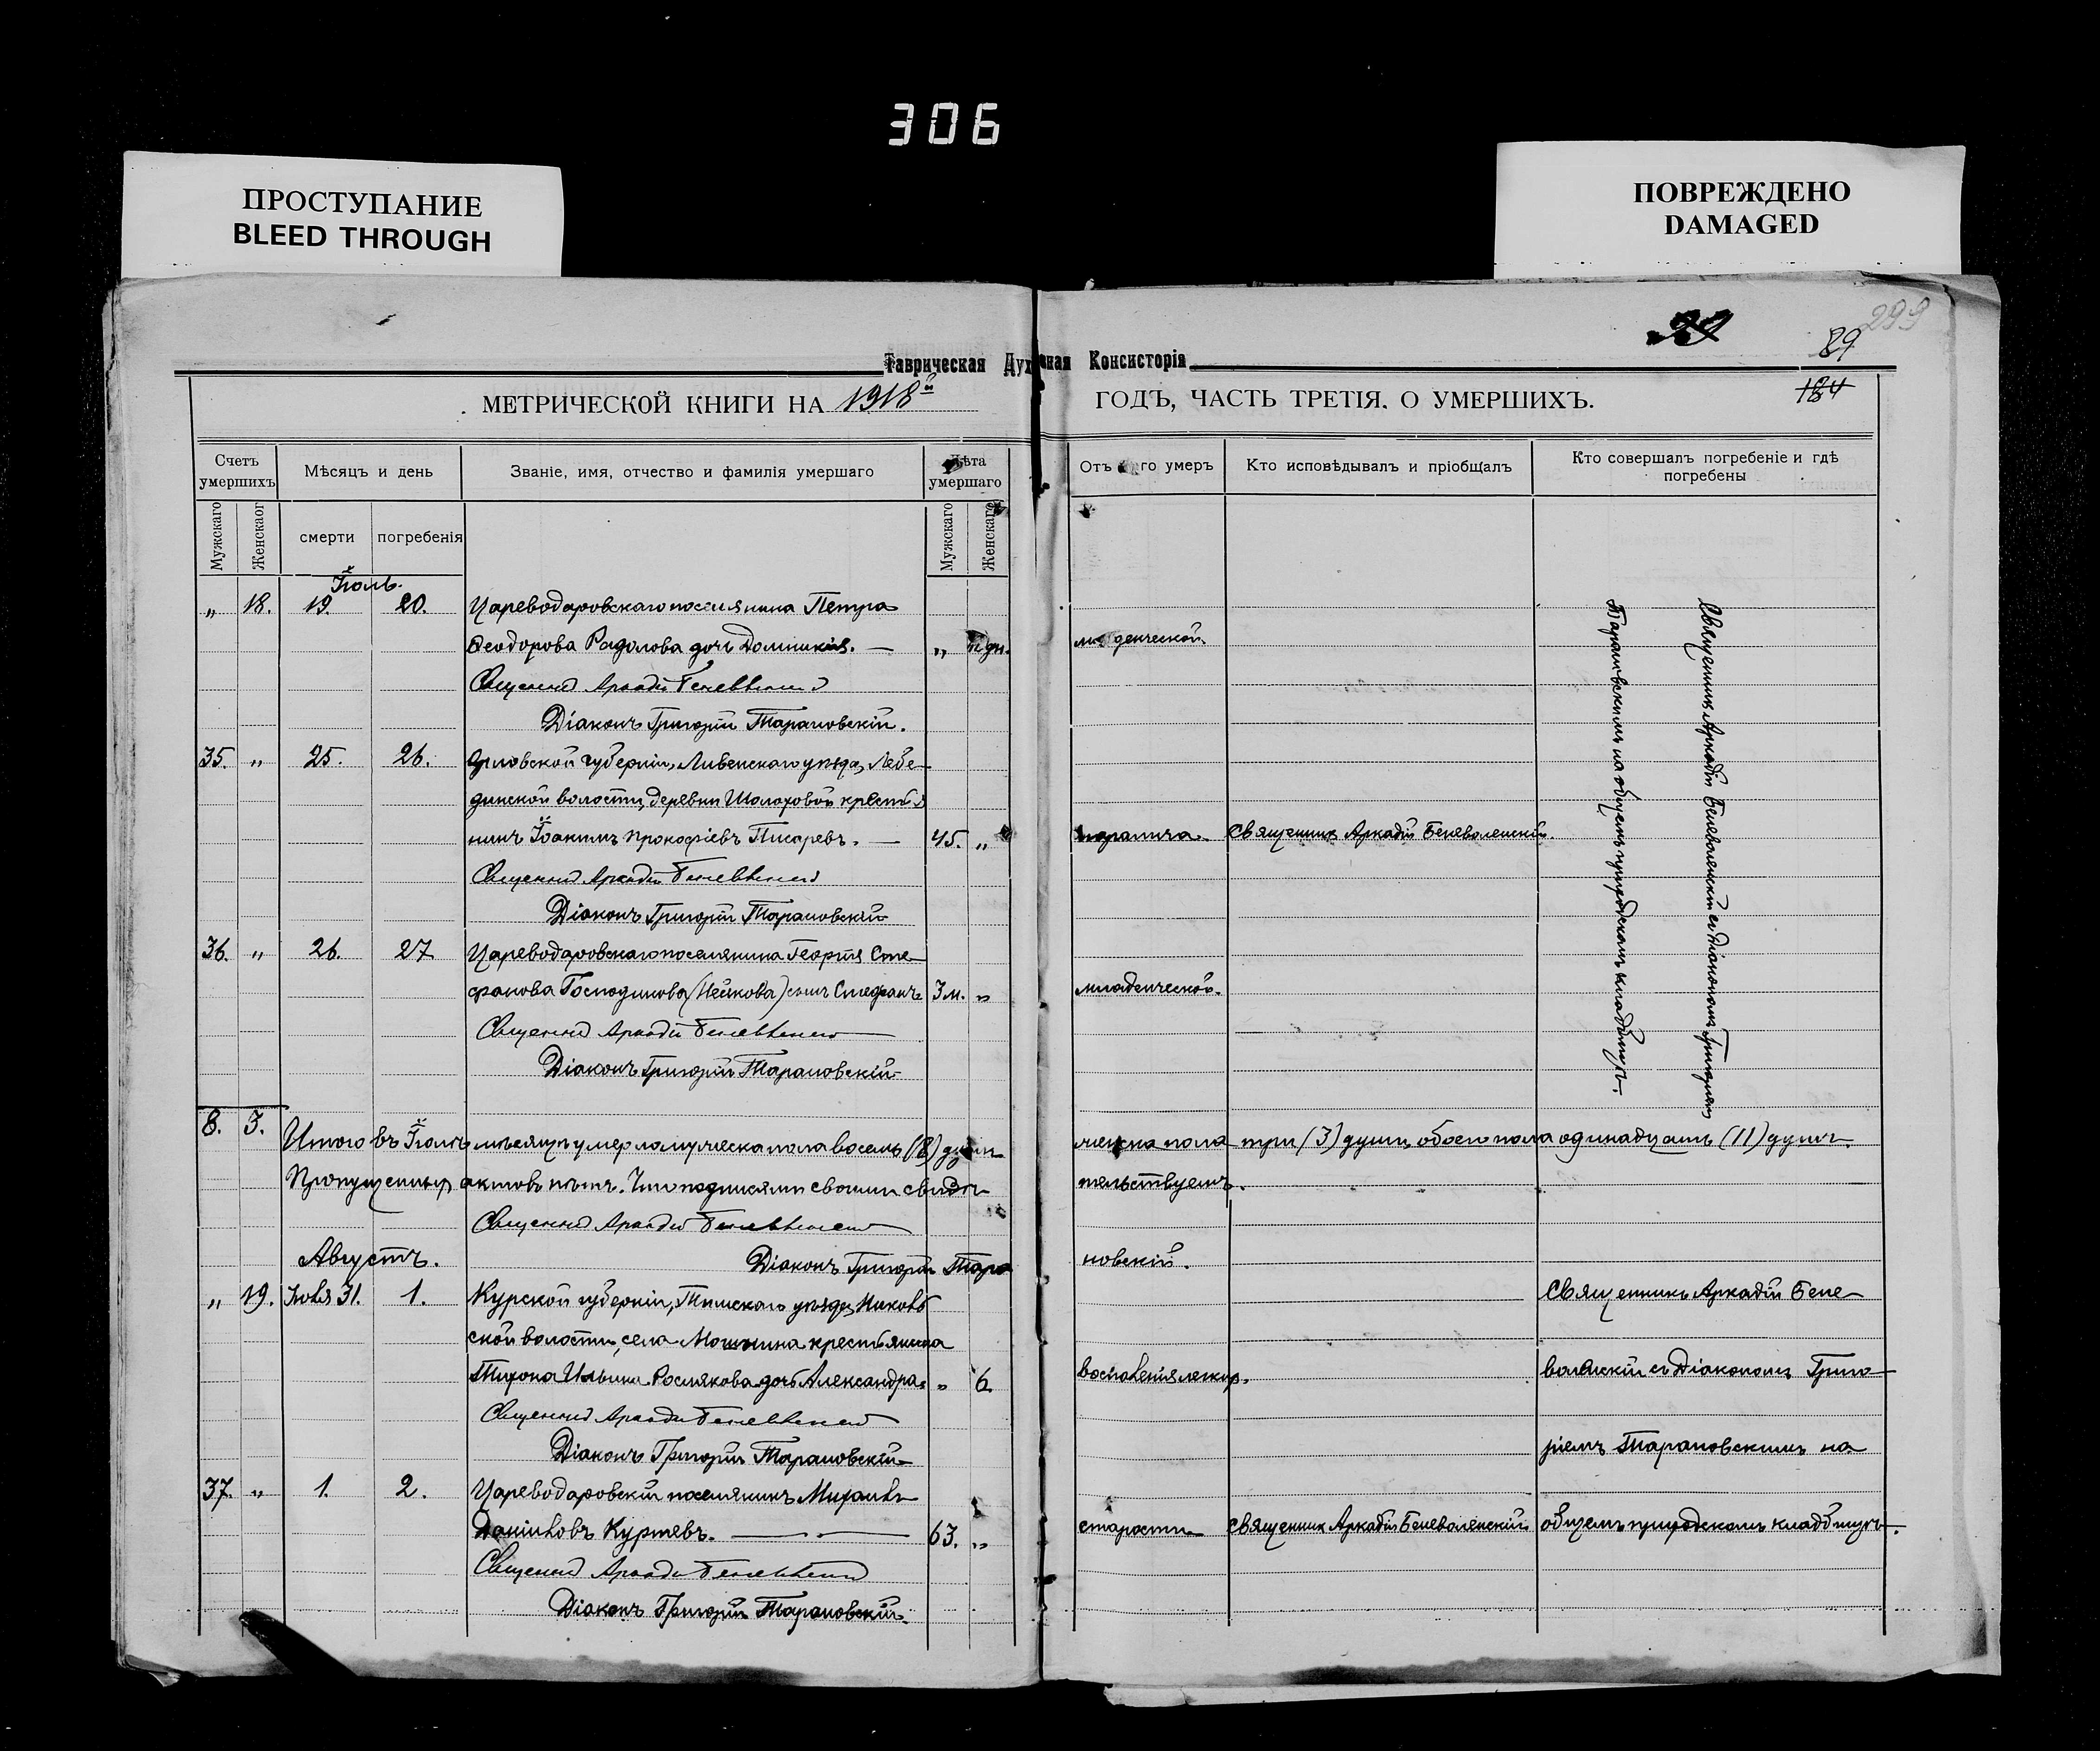 306
ПРОСТУПАНИЕ
BLEED THROUGH
ПОВРЕЖДЕНО
DAMAGED
299
89
184
Таврическая Духовная Консисторія
МЕТРИЧЕСКОЙ КНИГИ НА 1918й ГОДЪ, ЧАСТЬ ТРЕТІЯ. О УМЕРШИХЪ.
Счетъ умершихъ
Мѣсяцъ и день
Званіе, имя, отчество и фамилія умершаго
Лѣта умершаго
Отъ го умеръ
Кто исповѣдывалъ и пріобщалъ
Кто совершалъ погребеніе и гдѣ погребены
Мужскаго
Женскаог
смерти
погребенія
Мужскаго
Женскаго
Іюль.
„ 18. 19. 20. Цареводаровскаго поселянина Петра
Ѳеодорова Радолова дочь Домникія. — „ дн. младенческой.
Священникъ Аркадій Беневоленскій
Діаконъ Григорій Тарановскій.
35. „ 25. 26. Орловской губерніи, Ливенскаго уѣзда, Лебе-
динской волости, деревни Шолоховой крестья
нинъ Іоакимъ Прокофіевъ Писаревъ. — 45. „ паралича. Священникъ Аркадій Беневоленскій.
Священникъ Аркадій Беневоленскій
Діаконъ Григорій Тарановскій
36. „ 26. 27 Цареводаровскаго поселянина Георгія Сте-
фанова Господинова (Нейкова) сынъ Стефанъ 3 м. „ младенческой.
Священникъ Аркадій Беневоленскій
Діаконъ Григорій Тарановскій
Священникъ Аркадій Беневоленскій съ діакономъ Григоріемъ
Тарановскимъ на общемъ приходскомъ кладбищѣ.
8. 3. Итого въ Іюлѣ мѣсяцѣ умерло мужеска пола восемь (8) душъ женска пола три (3) души, обоего пола одинадцать (11) душъ.
Пропущенныхъ актовъ нѣтъ. Что подписями своими свидѣ- тельствуемъ.
Священникъ Аркадій Беневоленскій
Августъ. Діаконъ Григорій Тара новскій.
„ 19. Іюля 31. 1. Курской губерніи, Тимскаго уѣзда,
ской волости, села крестьянина
Тихона Ильина Рослякова дочь Александра. „ 6. воспаленія легкихъ.
Священникъ Аркадій Беневоленскій
Діаконъ Григорій Тарановскій
Священникъ Аркадій Бене-
воленскій съ Діакономъ Григо-
ріемъ Тарановскимъ на
общемъ приходскомъ кладбищѣ.
37. „ 1. 2. Цареводаровскій поселянинъ Михаилъ
Даніиловъ Куртевъ. — 63. „ старости Священникъ Аркадій Беневоленскій
Священникъ Аркадій Беневоленскій
Діаконъ Григорій Тарановскій.